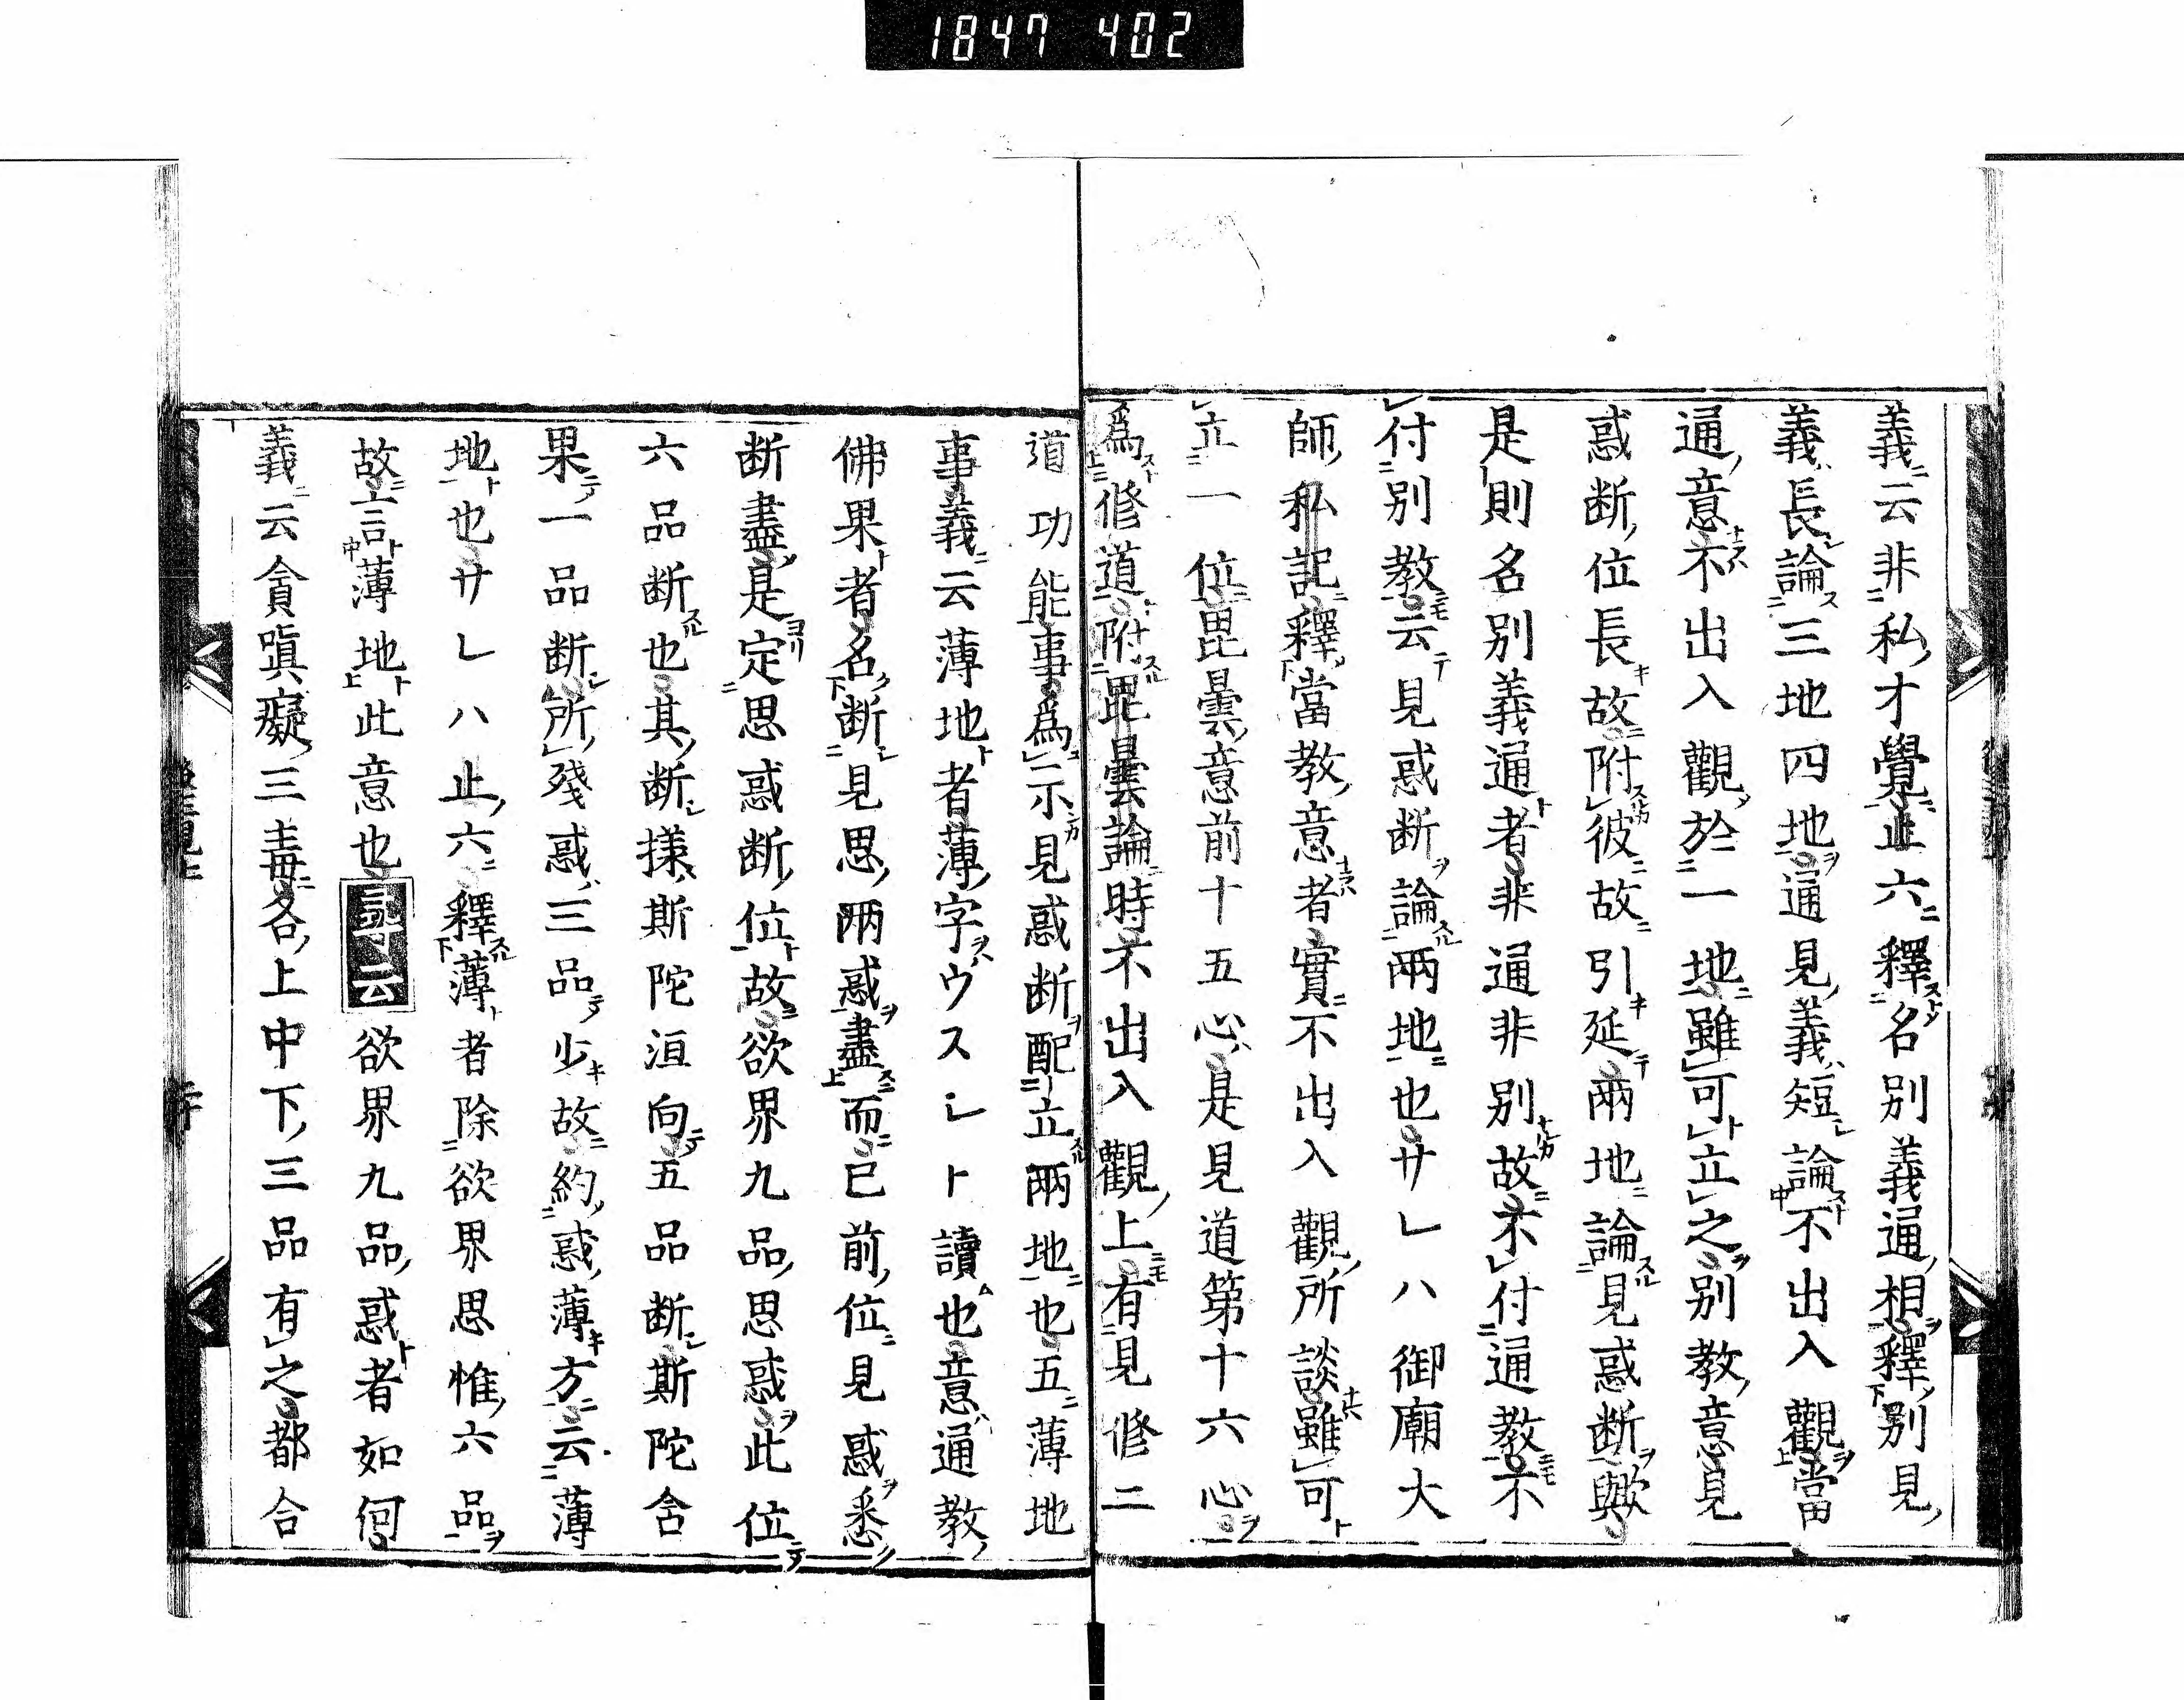 1847 402
義云非私才覺止六釋名別義通相釋別見
義長論三地四地通見義短論不出入觀當
通意不出入觀於一地雖可立之別教意見
惑断位長故附彼故引延兩地論見惑断歟
是則名別義通者非通非別故不付通教不
付別教云見惑断論兩地也サレハ御廟大
師私記釋當教意者實不出入觀所談雖可
立一位毘曇意前十五心是見道第十六心
爲修道附毘曇論時不出入觀上有見修二
道功能事爲示見惑断配立兩地也五薄地
事義云薄地者薄字ウスシト讀也意通教
佛果者名断見思兩惑盡而已前位見惑悉
断盡是定思惑断位故欲界九品思惑此位
六品断也其断様斯陀洹向五品断斯陀含
果一品断所殘惑三品少故約惑薄方云薄
地也サレハ止六釋薄者除欲界思惟六品
故言薄地此意也尋云欲界九品惑者如何
義云貪嗔癡三毒各上中下三品有之都合